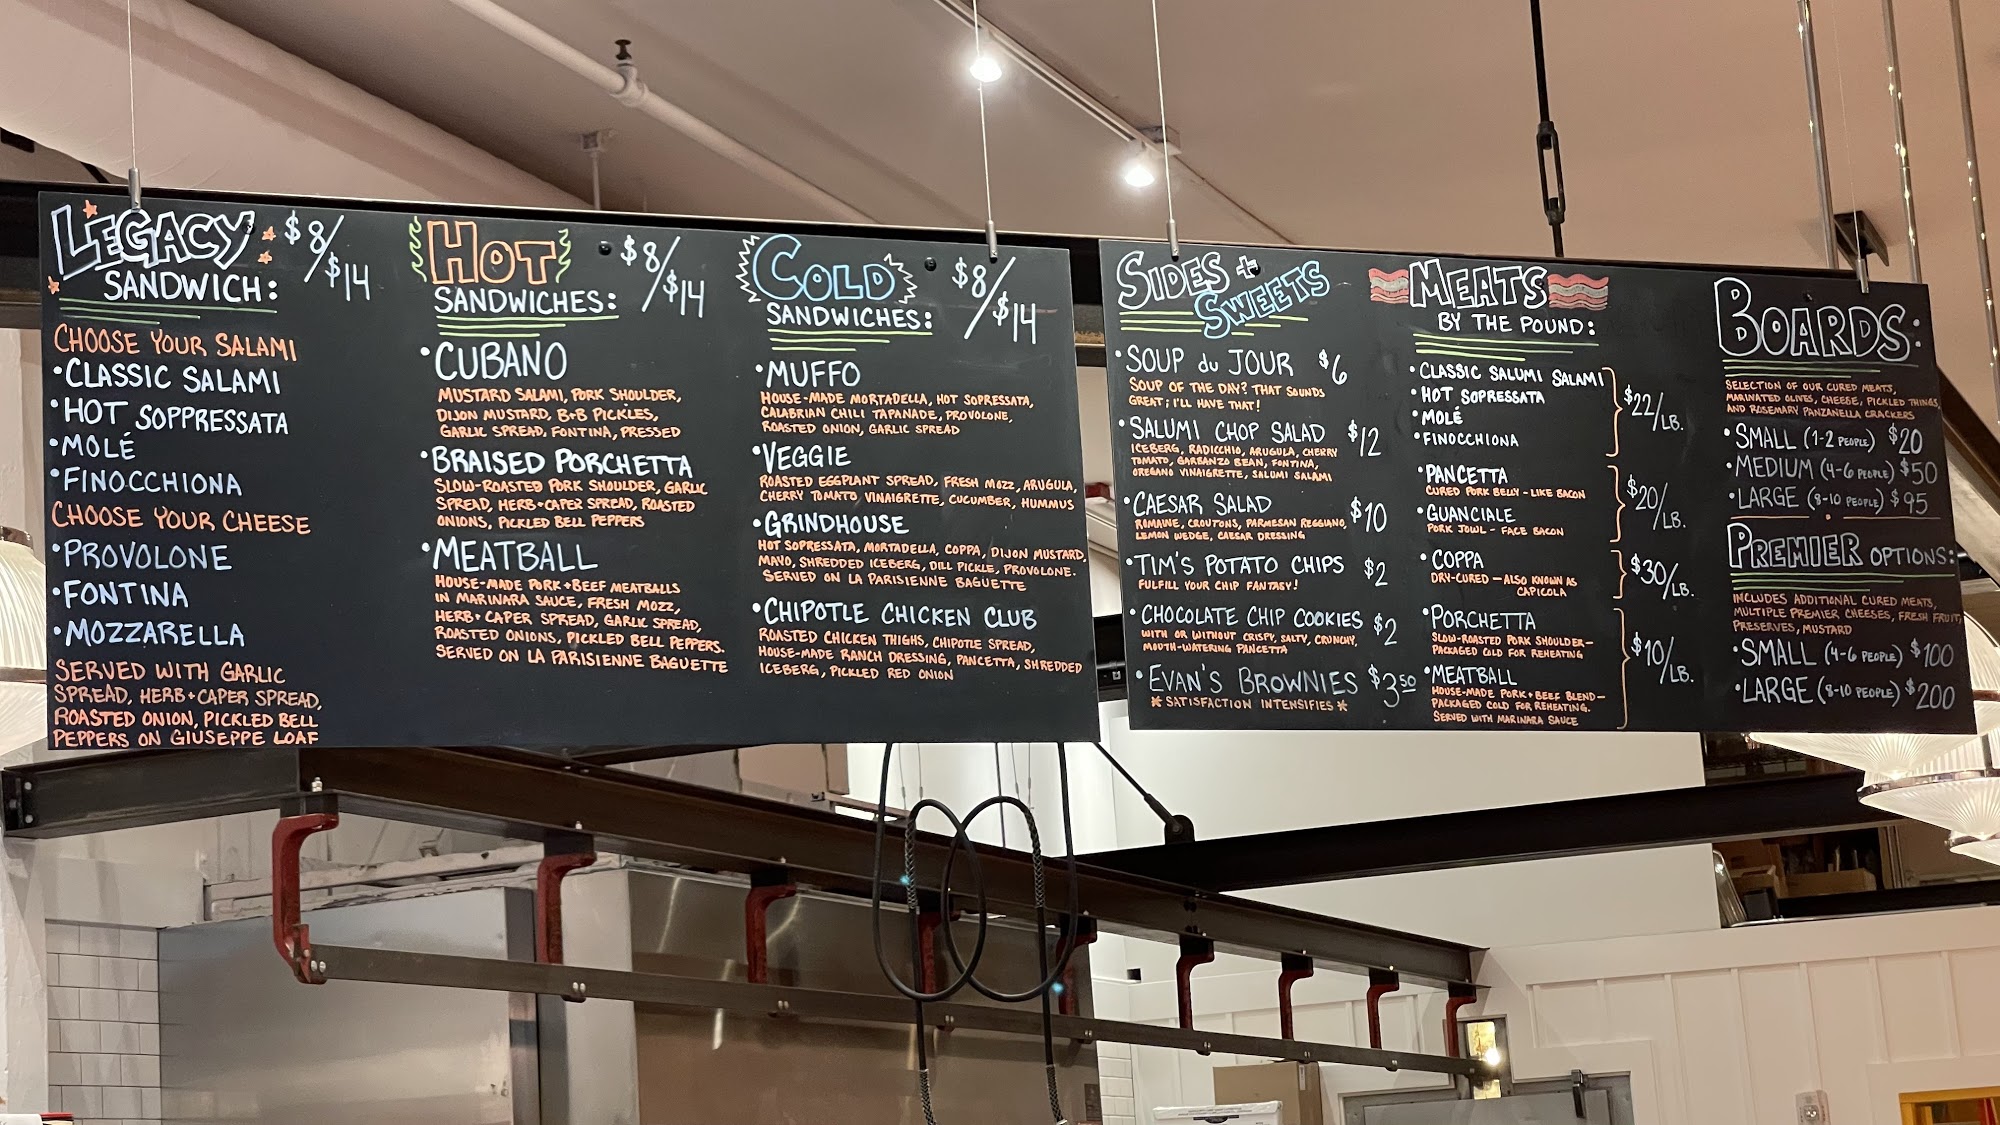 LEGACY
SANDWICH:
$8/$14
CHOOSE YOUR SALAMI
•CLASSIC SALAMI
•HOT SOPPRESSATA
•MOLÉ
•FINOCCHIONA
CHOOSE YOUR CHEESE
•PROVOLONE
•FONTINA
•MOZZARELLA
SERVED WITH GARLIC
SPREAD, HERB+CAPER SPREAD,
ROASTED ONION, PICKLED BELL
PEPPERS ON GIUSEPPE LOAF
HOT
SANDWICHES:
$8/$14
•CUBANO
MUSTARD SALAMI, PORK SHOULDER,
DIJON MUSTARD, B+B PICKLES,
GARLIC SPREAD, FONTINA, PRESSED
•BRAISED PORCHETTA
SLOW-ROASTED PORK SHOULDER, GARLIC
SPREAD, HERB+CAPER SPREAD, ROASTED
ONIONS, PICKLED BELL PEPPERS
•MEATBALL
HOUSE-MADE PORK+BEEF MEATBALLS
IN MARINARA SAUCE, FRESH MOZZ,
HERB+CAPER SPREAD, GARLIC SPREAD,
ROASTED ONIONS, PICKLED BELL PEPPERS.
SERVED ON LA PARISIENNE BAGUETTE
COLD
SANDWICHES:
$8/$14
•MUFFO
HOUSE-MADE MORTADELLA, HOT SOPRESSATA,
CALABRIAN CHILI TAPANADE, PROVOLONE,
ROASTED ONION, GARLIC SPREAD
•VEGGIE
ROASTED EGGPLANT SPREAD, FRESH MOZZ, ARUGULA,
CHERRY TOMATO VINAIGRETTE, CUCUMBER, HUMMUS
•GRINDHOUSE
HOT SOPRESSATA, MORTADELLA, COPPA, DIJON MUSTARD,
MAYO, SHREDDED ICEBERG, DILL PICKLE, PROVOLONE.
SERVED ON LA PARISIENNE BAGUETTE
•CHIPOTLE CHICKEN CLUB
ROASTED CHICKEN THIGHS, CHIPOTLE SPREAD,
HOUSE-MADE RANCH DRESSING, PANCETTA, SHREDDED
ICEBERG, PICKLED RED ONION
SIDES +
SWEETS
•SOUP du JOUR $6
SOUP OF THE DAY? THAT SOUNDS
GREAT; I'LL HAVE THAT!
•SALUMI CHOP SALAD $12
ICEBERG, RADICCHIO, ARUGULA, CHERRY
TOMATO, GARBANZO BEAN, FONTINA,
OREGANO VINAIGRETTE, SALUMI SALAMI
•CAESAR SALAD $10
ROMAINE, CROUTONS, PARMESAN REGGIANO,
LEMON WEDGE, CAESAR DRESSING
•TIM'S POTATO CHIPS $2
FULFILL YOUR CHIP FANTASY!
•CHOCOLATE CHIP COOKIES $2
WITH OR WITHOUT CRISPY, SALTY, CRUNCHY,
MOUTH-WATERING PANCETTA
•EVAN'S BROWNIES $3.50
*SATISFACTION INTENSIFIES*
MEATS
BY THE POUND:
•CLASSIC SALUMI SALAMI
•HOT SOPRESSATA
•MOLÉ
•FINOCCHIONA
$22/LB.
•PANCETTA
CURED PORK BELLY - LIKE BACON
•GUANCIALE
PORK JOWL - FACE BACON
$20/LB.
•COPPA
DRY-CURED - ALSO KNOWN AS
CAPICOLA
$30/LB.
•PORCHETTA
SLOW-ROASTED PORK SHOULDER-
PACKAGED COLD FOR REHEATING
•MEATBALL
HOUSE-MADE PORK+BEEF BLEND-
PACKAGED COLD FOR REHEATING.
SERVED WITH MARINARA SAUCE
$10/LB.
BOARDS:
SELECTION OF OUR CURED MEATS,
MARINATED OLIVES, CHEESE, PICKLED THINGS,
AND ROSEMARY PANZANELLA CRACKERS
•SMALL (1-2 PEOPLE) $20
•MEDIUM (4-6 PEOPLE) $50
•LARGE (8-10 PEOPLE) $95
PREMIER OPTIONS:
INCLUDES ADDITIONAL CURED MEATS,
MULTIPLE PREMIER CHEESES, FRESH FRUIT,
PRESERVES, MUSTARD
•SMALL (4-6 PEOPLE) $100
•LARGE (8-10 PEOPLE) $200